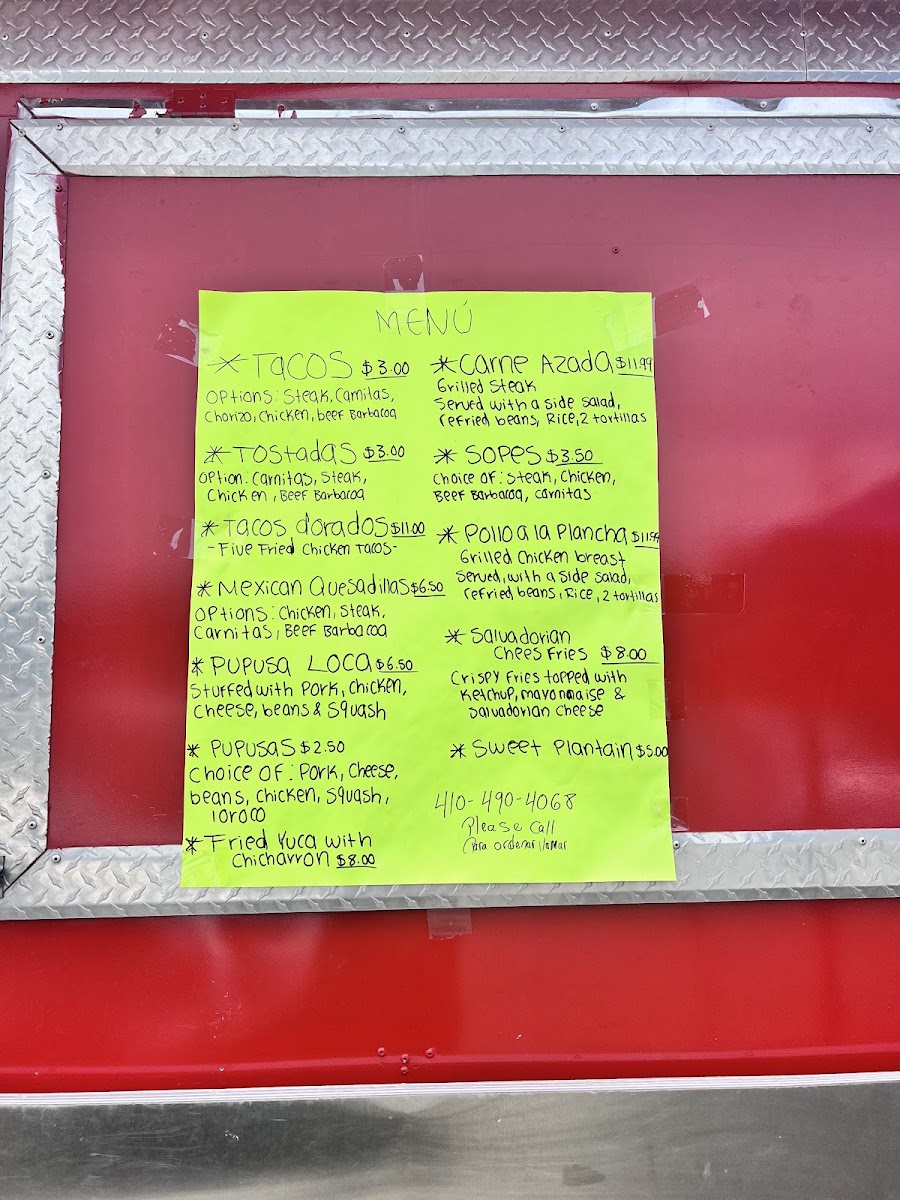 MENÚ
* Tacos $3.00
Options: Steak, Carnitas,
Chorizo, Chicken, beef Barbacoa
* Tostadas $3.00
Option: Carnitas, Steak,
Chicken, Beef Barbacoa
* Tacos dorados $11.00
- Five Fried Chicken Tacos -
* Mexican Quesadillas $6.50
Options: Chicken, Steak,
Carnitas, Beef Barbacoa
* Pupusa Loca $6.50
Stuffed with Pork, Chicken,
Cheese, beans & Squash
* Pupusas $2.50
Choice of: Pork, Cheese,
beans, Chicken, Squash,
loroco
* Fried Yuca with
Chicharron $8.00
* Carne Azada $11.99
Grilled Steak
Served with a side salad,
refried beans, Rice, 2 tortillas
* Sopes $3.50
Choice of: Steak, Chicken,
Beef Barbacoa, Carnitas
* Pollo a la Plancha $11.99
Grilled Chicken breast
Served, with a side salad,
refried beans, Rice, 2 tortillas
* Salvadorian
Chees Fries $8.00
Crispy Fries topped with
Ketchup, mayonnaise &
Salvadorian cheese
* Sweet Plantain $5.00
410-490-4068
Please Call
Para ordenar llamar